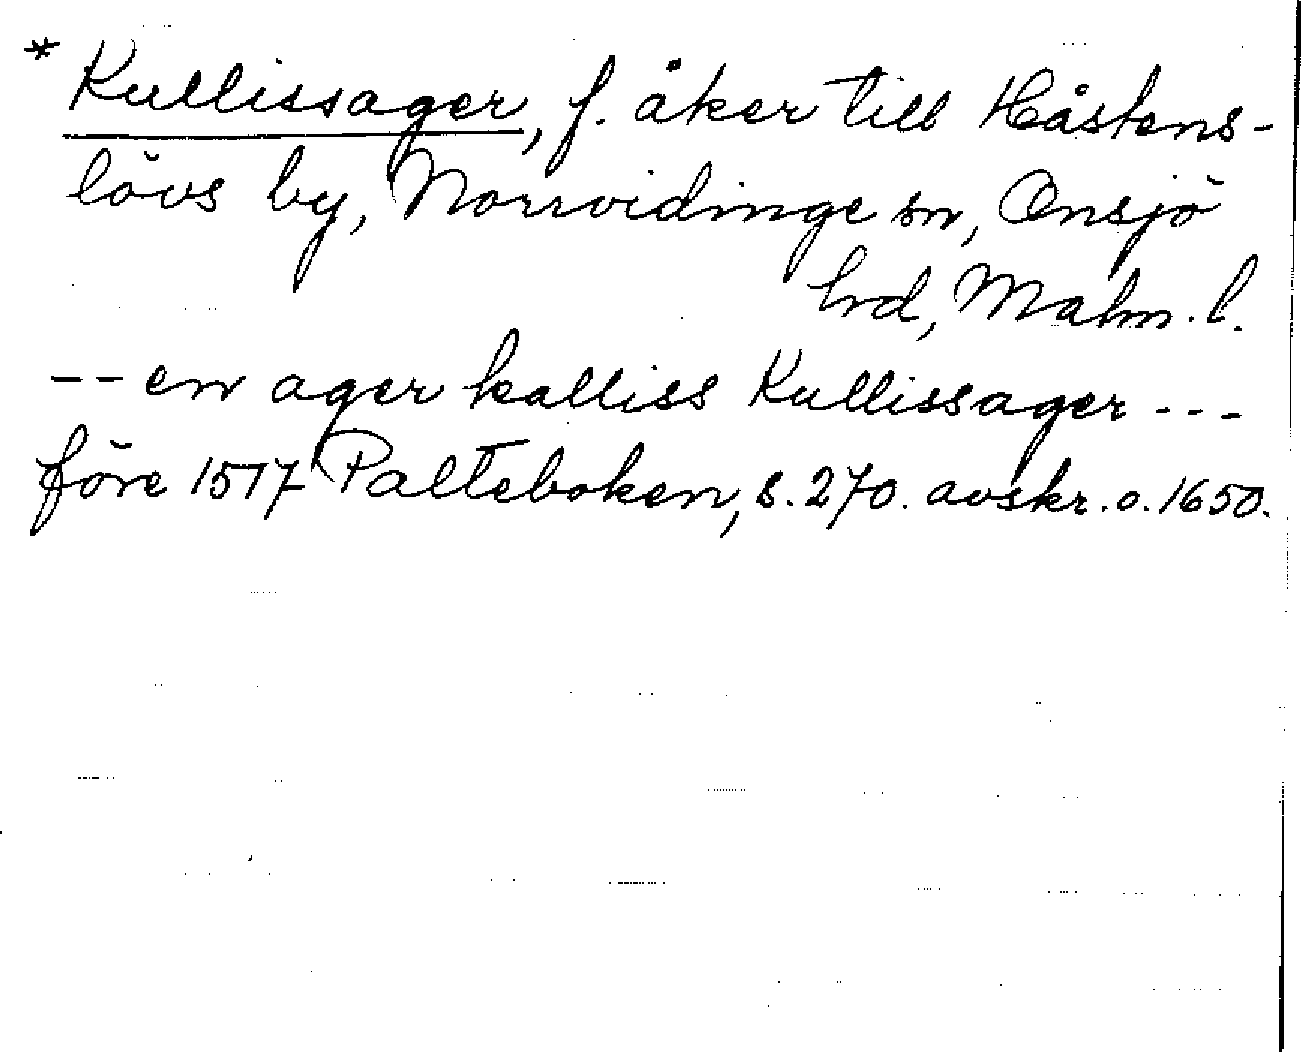 * Kullissager, f. åker till Håstens-
lövs by, Norrvidinge sn, Onsjö
hrd, Malm. l.
-- en ager kalliss Kullissager ---
före 1517 Palteboken, s. 270. avskr. o. 1650.